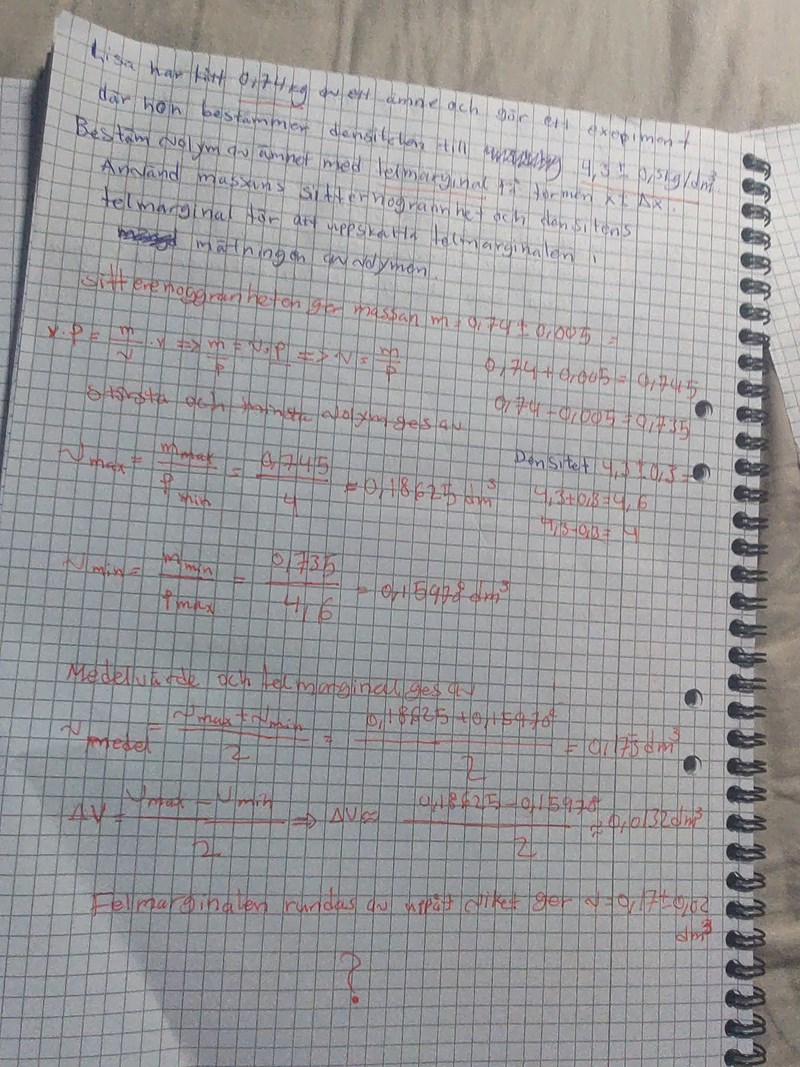 Lisa har fått 0,74 kg av ett ämne och gör ett exepiment
där hon bestämmer densiteten till 4,3 ± 0,3 kg/dm³
Bestäm volym av ämnet med felmarginal på formen x ± Δx.
Använd massans siffernogrannhet och densitens
felmarginal för att uppskatta felmarginalen i
mätningen av volymen.
Sifferenoggranheten ger massan m = 0,74 ± 0,005 =
0,74 + 0,005 = 0,745
0,74 - 0,005 = 0,735
v · ρ = m/v · v => m/ρ = v·ρ/ρ => v = m/ρ
Största och minsta volym ges av
Densitet 4,3 ± 0,3 =
4,3 + 0,3 = 4,6
4,3 - 0,3 = 4
Vmax = mmax/ρmin = 0,745/4 = 0,18625 dm³
Vmin = mmin/ρmax = 0,735/4,6 = 0,15978 dm³
Medelvärde och felmarginal ges av
Vmedel = (Vmax + Vmin)/2 = (0,18625 + 0,15978)/2 = 0,173 dm³
ΔV = (Vmax - Vmin)/2 => ΔV ≈ (0,18625 - 0,15978)/2 ≈ 0,0132 dm³
Felmarginalen rundas av uppåt vilket ger v = 0,17 ± 0,02
dm³
?